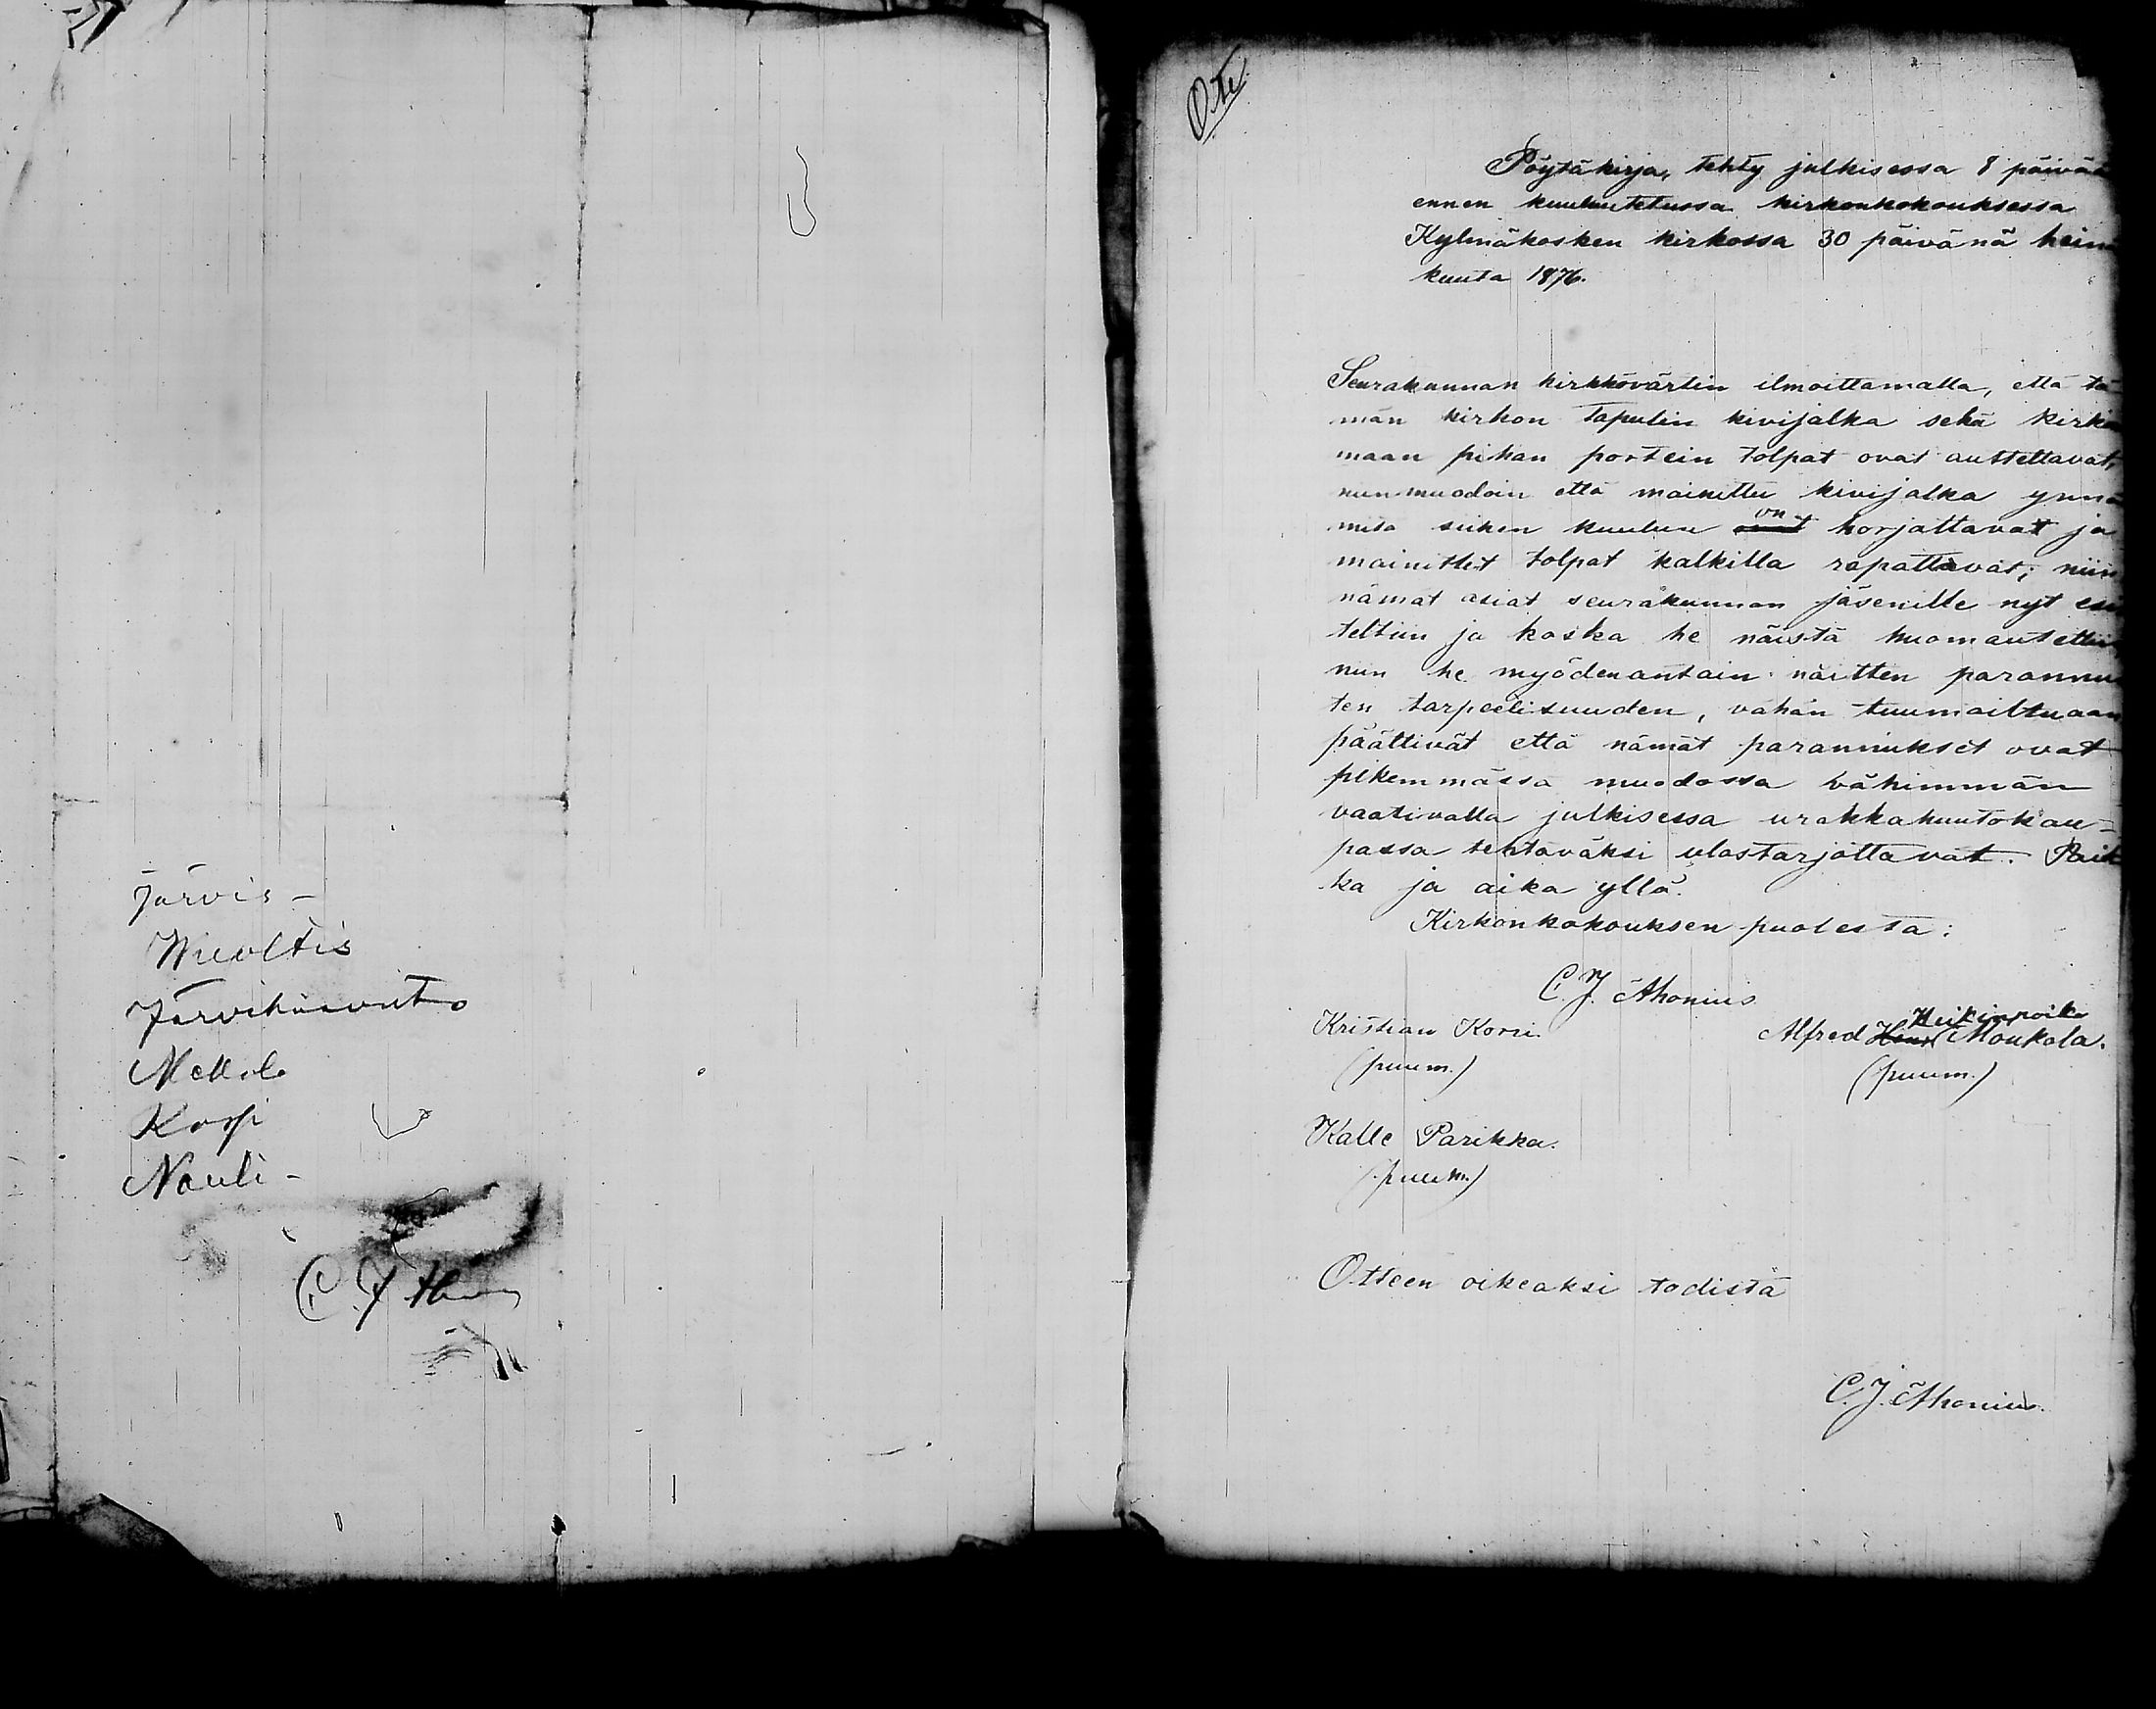 Järvis -
Järvihaavisto
Mellola
Korpi
Nauli -
C. J. Ahonius
Ote
Pöytäkirja, tehty julkisessa 8 päivää
ennen kuulutetussa kirkonkokouksessa
Kylmäkosken kirkossa 30 päivänä heinä
kuuta 1876.
Seurakunnan kirkkovärtin ilmoittamalla, että tä
män kirkon tapulin kivijalka sekä kirkko
maan pihan portein tolpat ovat autettavat,
niinmuodoin että mainittu kivijalka ynnä
mitä siihen kuuluu on korjattavat ja
mainittet tolpat kalkilla rapattavat; niin
nämät asiat seurakunnan jäsenille nyt esi
teltiin ja koska he näistä huomautettiin
niin he myödenantain näitten parannus
ten tarpeelisuuden, vähän tuumailtuaan
päättivät että nämät parannukset ovat
pikemmässä muodossa vähimmän
vaativalla julkisessa urakkahuutokau-
passa tehtäväksi ulostarjottavat. Paik
ka ja aika yllä.
Kirkonkokouksen puolesta:
C. J. Ahonius
Kristian Korsi. Alfred Heikinpoika Moukola.
(puum.) (puum.)
Kalle Parikka.
(puum.)
Otteen oikeaksi todistá
C. J. Ahonius.